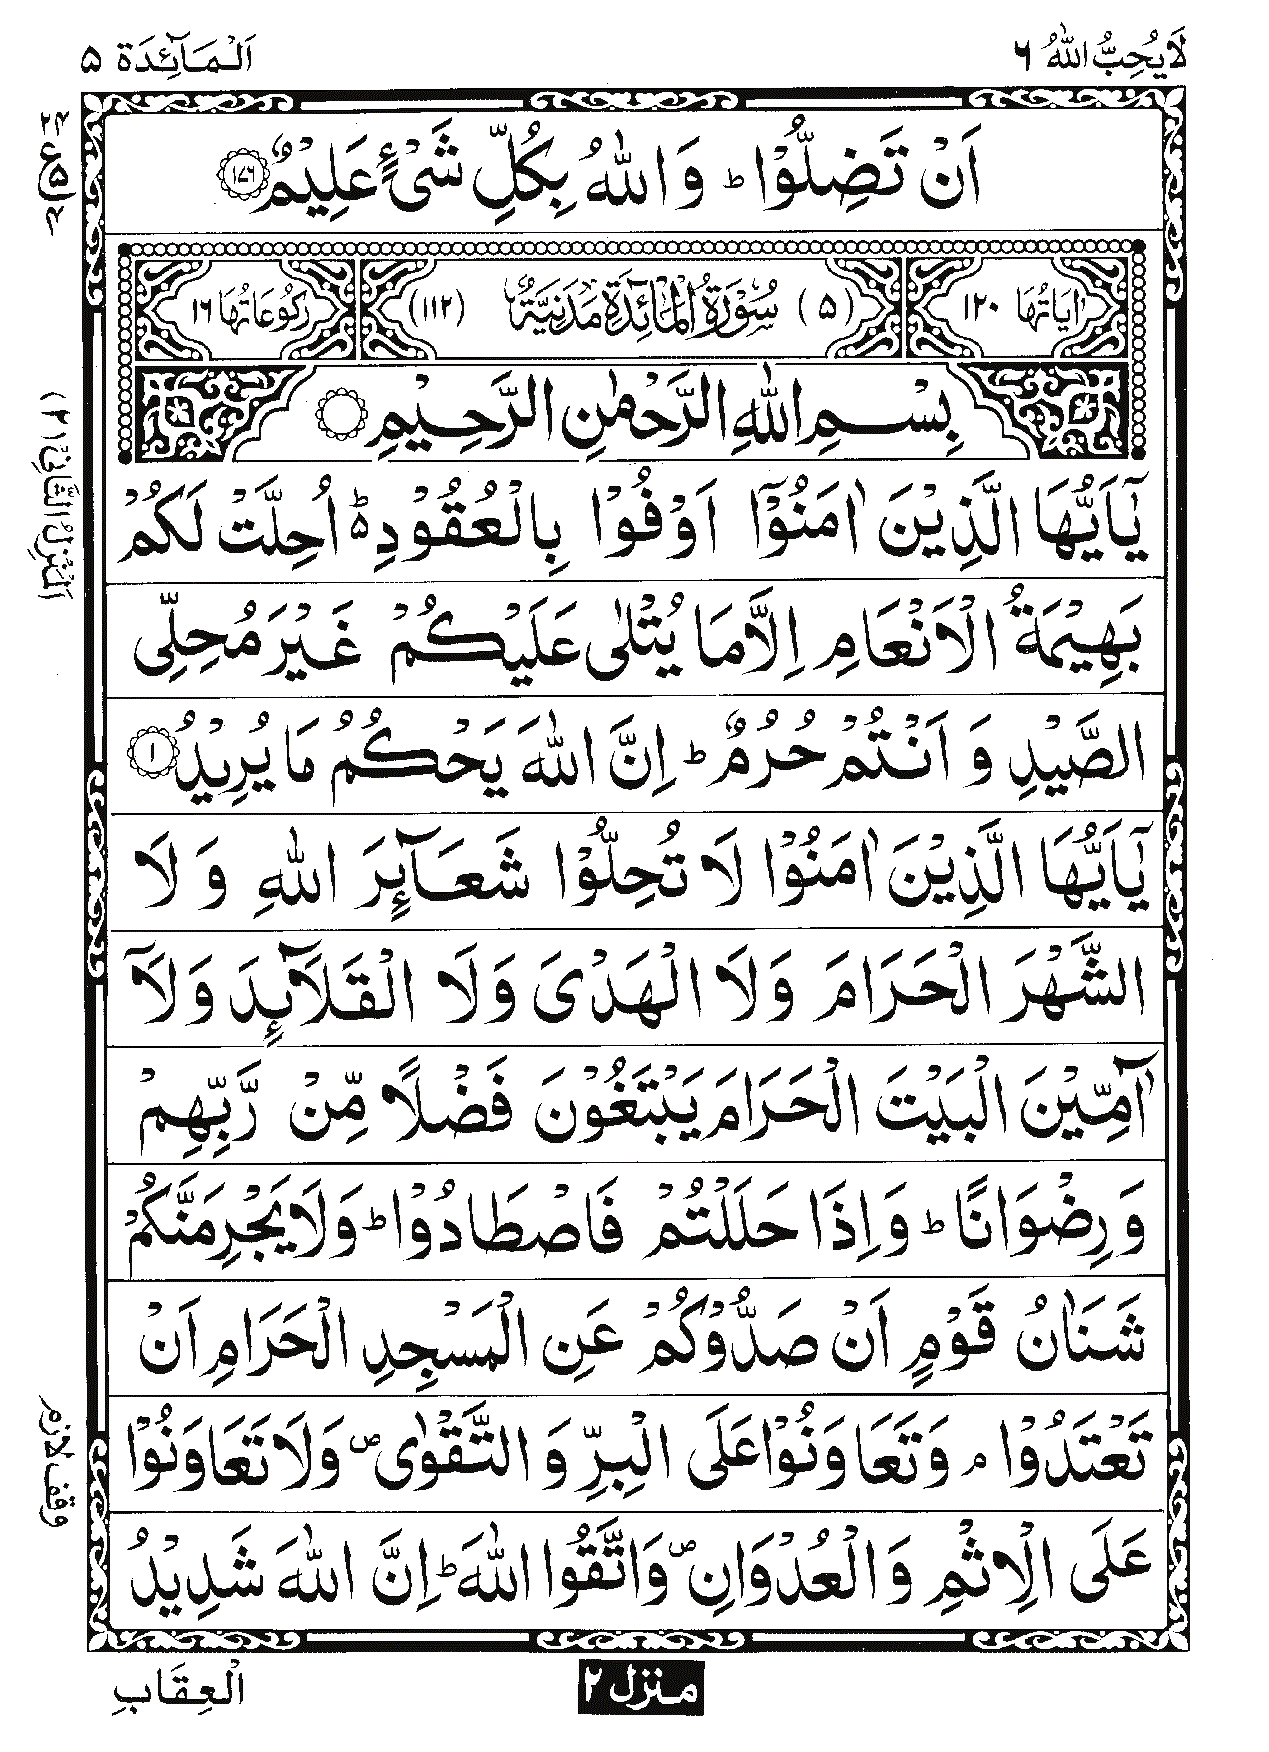 لَا يُحِبُّ اللّٰهُ ٦
اَلْمَآئِدَة ۵
اَنْ تَضِلُّوْا ؕ وَ اللّٰهُ بِكُلِّ شَیْءٍ عَلِیْمٌ ۱۷۶
اٰیَاتُهَا ۱۲۰
(۵) سُوْرَةُ الْمَآئِدَةِ مَدَنِیَّةٌ (۱۱۲)
رُكُوْعَاتُهَا ۱۶
بِسْمِ اللّٰهِ الرَّحْمٰنِ الرَّحِیْمِ
یٰۤاَیُّهَا الَّذِیْنَ اٰمَنُوْۤا اَوْفُوْا بِالْعُقُوْدِ ؕ۬ اُحِلَّتْ لَكُمْ
بَهِیْمَةُ الْاَنْعَامِ اِلَّا مَا یُتْلٰى عَلَیْكُمْ غَیْرَ مُحِلِّی
الصَّیْدِ وَ اَنْتُمْ حُرُمٌ ؕ اِنَّ اللّٰهَ یَحْكُمُ مَا یُرِیْدُ ۱
یٰۤاَیُّهَا الَّذِیْنَ اٰمَنُوْا لَا تُحِلُّوْا شَعَآئِرَ اللّٰهِ وَ لَا
الشَّهْرَ الْحَرَامَ وَلَا الْهَدْیَ وَلَا الْقَلَآئِدَ وَلَاۤ
آٰمِّیْنَ الْبَیْتَ الْحَرَامَ یَبْتَغُوْنَ فَضْلًا مِّنْ رَّبِّهِمْ
وَرِضْوَانًا ؕ وَاِذَا حَلَلْتُمْ فَاصْطَادُوْا ؕ وَلَا یَجْرِمَنَّكُمْ
شَنَاٰنُ قَوْمٍ اَنْ صَدُّوْكُمْ عَنِ الْمَسْجِدِ الْحَرَامِ اَنْ
تَعْتَدُوْا ۘ وَتَعَاوَنُوْا عَلَى الْبِرِّ وَ التَّقْوٰى ۪ وَلَا تَعَاوَنُوْا
عَلَى الْاِثْمِ وَ الْعُدْوَانِ ۪ وَاتَّقُوا اللّٰهَ ؕ اِنَّ اللّٰهَ شَدِیْدُ
الْعِقَابِ
منزل ۲
۲۴
ع
۵
۴
اَلْمَنْزِلُ الثَّانِیْ (۲)
وقف لازم